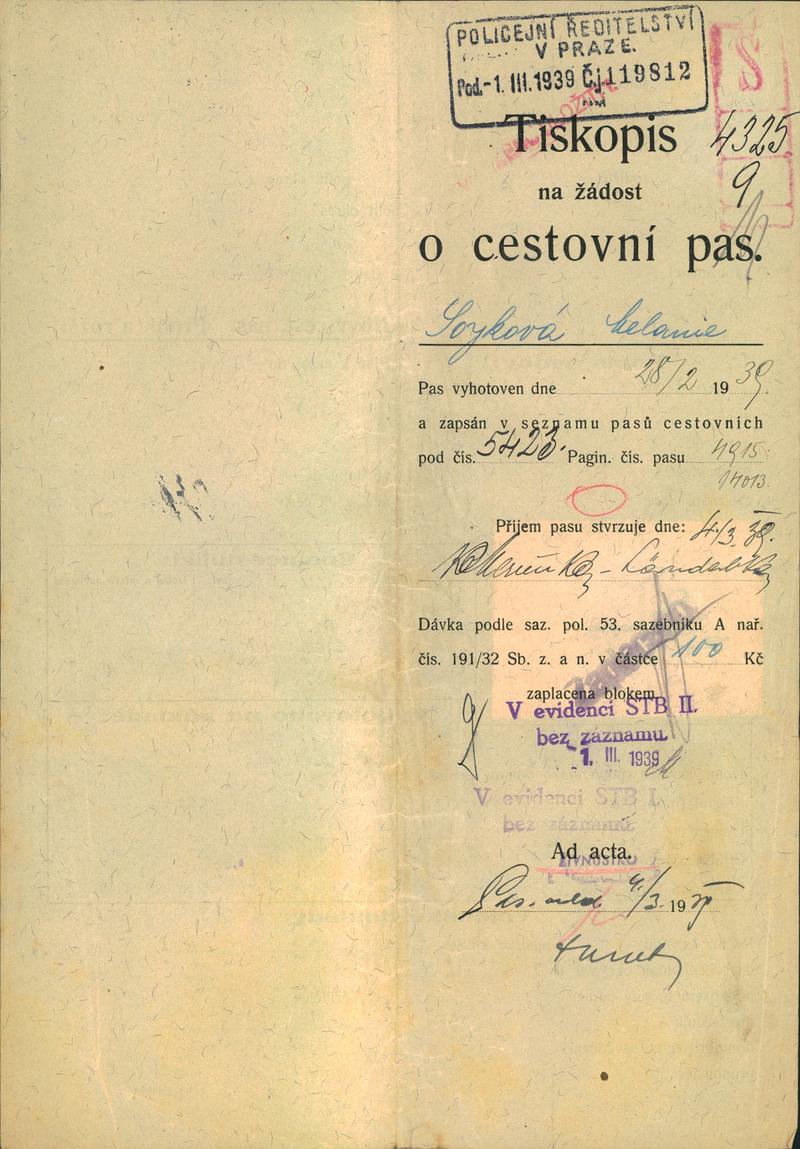 POLICEJNÍ ŘEDITELSTVÍ
V PRAZE.
Pod.-1. III. 1939 Čj 119812
Tiskopis 4325
na žádost 9
o cestovní pas.
Soyková Melanie
Pas vyhotoven dne 28/2 1939.
a zapsán v seznamu pasů cestovních
pod čís. 5423. Pagin. čís. pasu 4915
14013.
Příjem pasu stvrzuje dne: 4/3. 39.
Dávka podle saz. pol. 53. sazebníku A nař.
čís. 191/32 Sb. z. a n. v částce 100 Kč
zaplacena blokem
V evidenci STB II.
bez záznamu.
1. III. 1939
V evidenci STB I.
bez záznamu.
Ad acta.
ŽIVNOSTKO
4/3. 1939